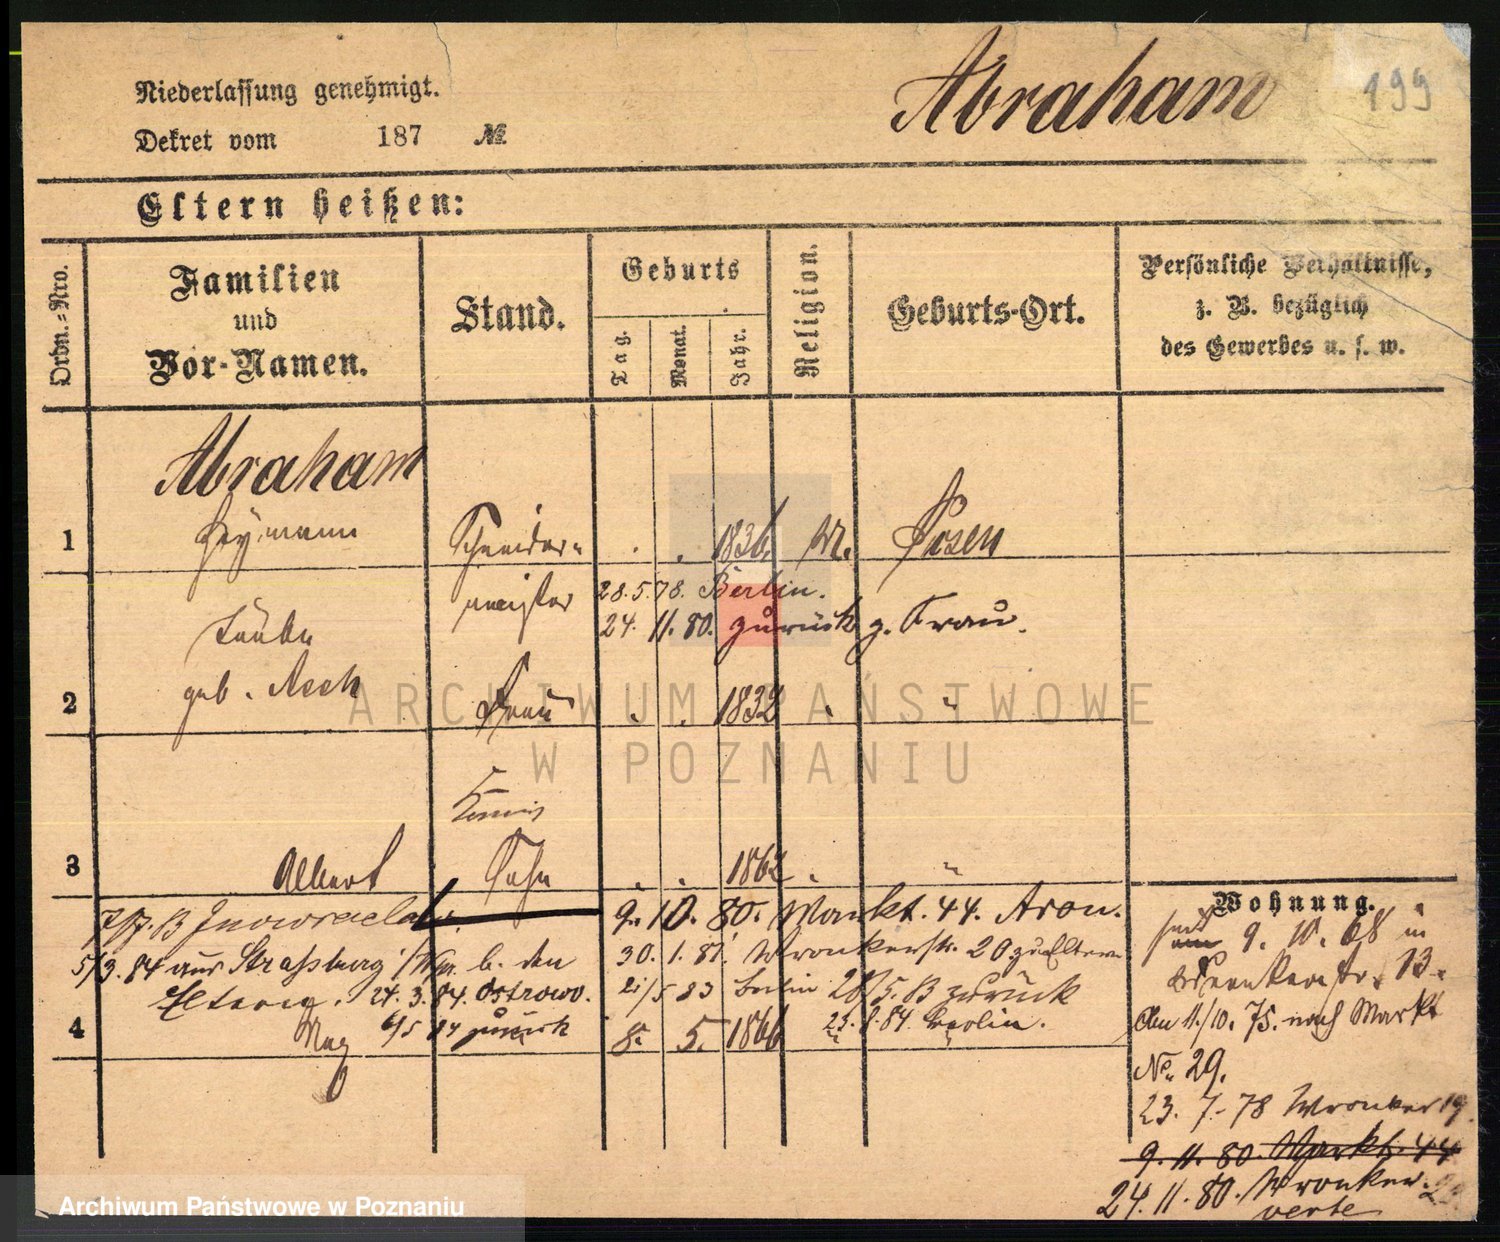 Abraham
199
Niederlassung genehmigt.
Dekret vom 187 №
Eltern heißen:
Ordn.=Nro.
Familien
und
Vor-Namen.
Stand.
Geburts
Tag.
Monat.
Jahr.
Religion.
Geburts-Ort.
Persönliche Verhältnisse,
z. B. bezüglich
des Gewerbes u. s. w.
Abraham
1 Heymann Schneider- 1836. M. Posen
meister 28.5.78. Berlin.
24. 11. 80. zurück z. Frau.
Taube
geb. Asch
2 Frau 1832 "
Commis
3 Albert Sohn 1862 "
Inowraclaw. 9. 10. 80. Markt. 44. Aron.
5/3. 84 aus Strassburg b. den 30. 1. 81. Wronkerstr. 20 zu Eltern
Eltern. 24. 3. 84. Ostrowo. 21/5 83 Berlin 28/5. 83 zurück
4 Max 6/5 84 zurück 8. 5. 1866 23. 8. 84. Berlin.
Wohnung.
seit 9. 10. 68 in
13.
Am 11./10. 75. nach Markt
No. 29.
23. 7. 78 Wronker 19.
9. 11. 80. Markt. 44
24. 11. 80. Wronker.
verte
ARCHIWUM PAŃSTWOWE
W POZNANIU
Archiwum Państwowe w Poznaniu